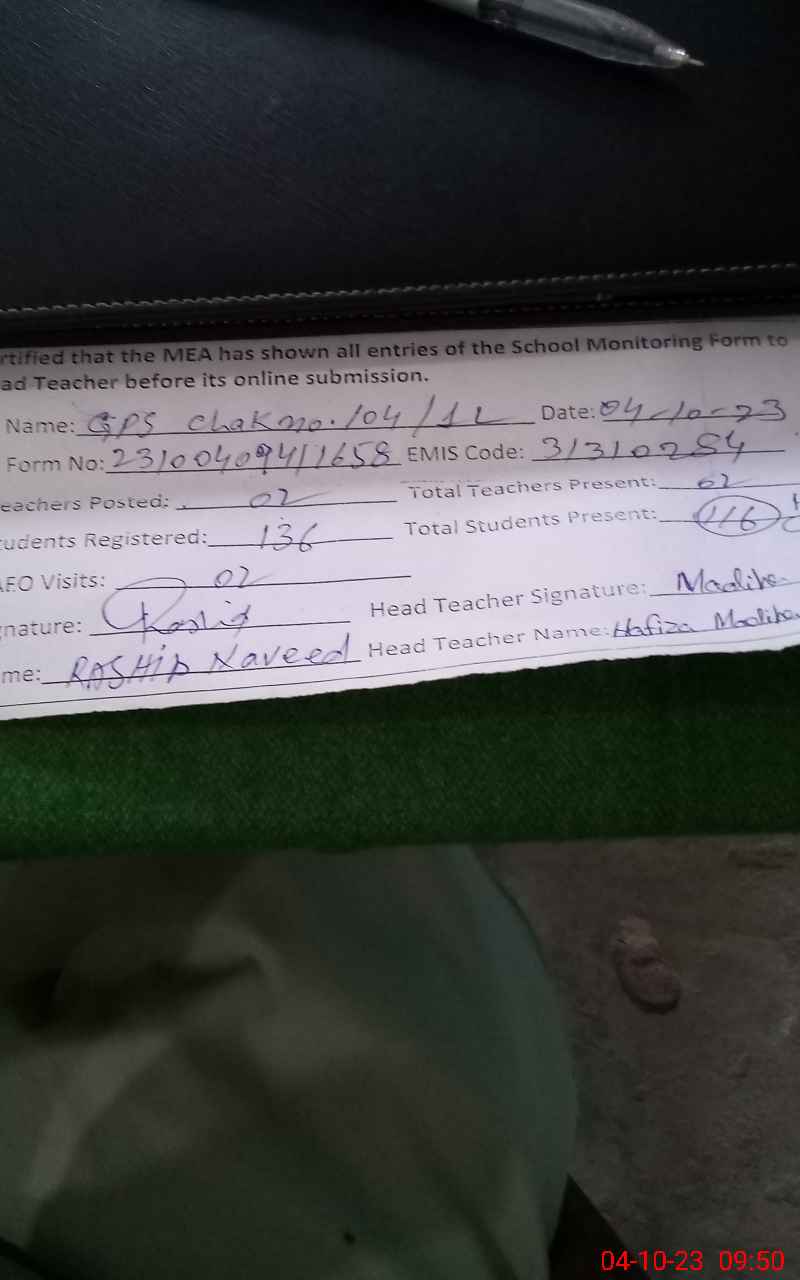 rtified that the MEA has shown all entries of the School Monitoring Form to
ad Teacher before its online submission.
Name: GPS Chak no. 104/1L Date: 04-10-23
Form No: 23100409411658 EMIS Code: 31310284
eachers Posted: 02 Total Teachers Present: 02
tudents Registered: 136 Total Students Present: 116
AEO Visits: 02
gnature: Rashid Head Teacher Signature: Madiha
me: RASHID Naveed Head Teacher Name: Hafiza Madiha
04-10-23 09:50